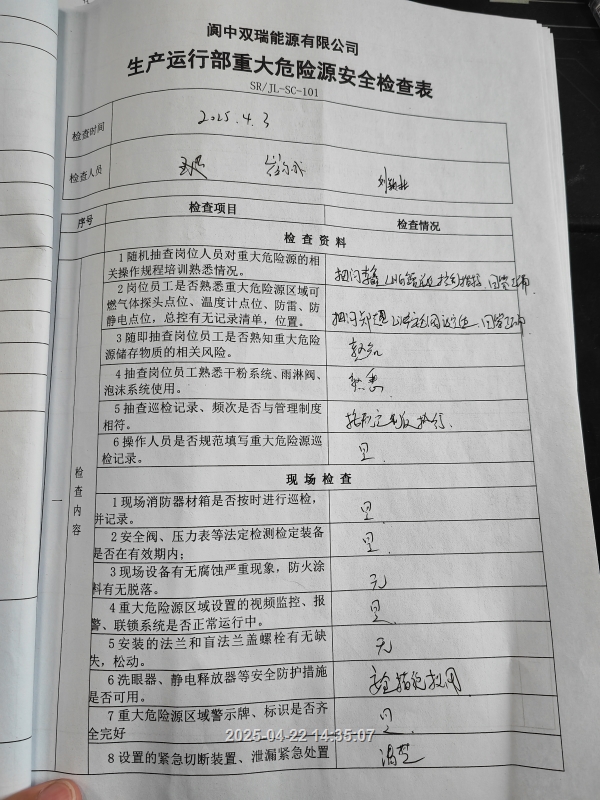 阆中双瑞能源有限公司
生产运行部重大危险源安全检查表
SR/JL-SC-101
检查时间 2025.4.3
检查人员
序号 检查项目 检查情况
检查资料
1随机抽查岗位人员对重大危险源的相
关操作规程培训熟悉情况。
2岗位员工是否熟悉重大危险源区域可
燃气体探头点位、温度计点位、防雷、防
静电点位，总控有无记录清单，位置。
3随即抽查岗位员工是否熟知重大危险
源储存物质的相关风险。 熟知
4抽查岗位员工熟悉干粉系统、雨淋阀、
泡沫系统使用。 熟悉
5抽查巡检记录、频次是否与管理制度
相符。
6操作人员是否规范填写重大危险源巡
检记录。 是.
一 检查内容
现场检查
1现场消防器材箱是否按时进行巡检，
并记录。 是.
2安全阀、压力表等法定检测检定装备
是否在有效期内； 是.
3现场设备有无腐蚀严重现象，防火涂
料有无脱落。 无
4重大危险源区域设置的视频监控、报
警、联锁系统是否正常运行中。 是.
5安装的法兰和盲法兰盖螺栓有无缺
失，松动。 无
6洗眼器、静电释放器等安全防护措施
是否可用。
7重大危险源区域警示牌、标识是否齐
全完好 是.
8设置的紧急切断装置、泄漏紧急处置
2025-04-22 14:35:07